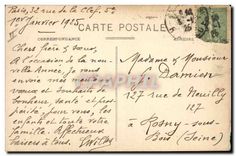 Paris, 32 rue de la Clef, 5e
1er Janvier 1925
CARTE POSTALE
CORRESPONDANCE
Chers frère & sœur,
A l'occasion de la nou-
velle Année, Je vous
envoie mes meilleurs
vœux et souhaits de
bonheur, santé et pros-
périté, pour vous, les
enfants et toute votre
famille. Affectueux
baisers à tous.
Madame et Monsieur
L. Damion
127 rue de Neuilly
127
à Rosny-sous-
Bois (Seine)